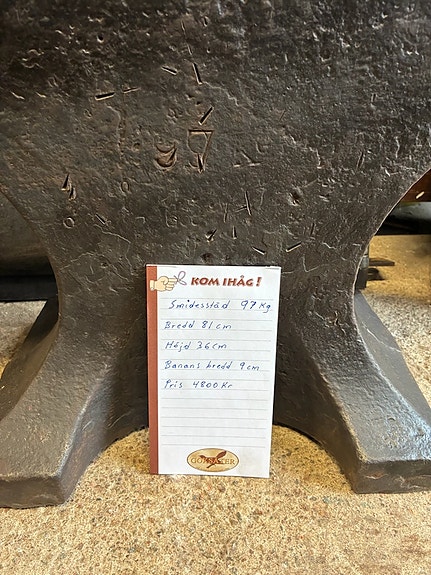 KOM IHÅG!
Smidesstäd 97 Kg
Bredd 81 cm
Höjd 36 cm
Banans bredd 9 cm
Pris 4800 Kr